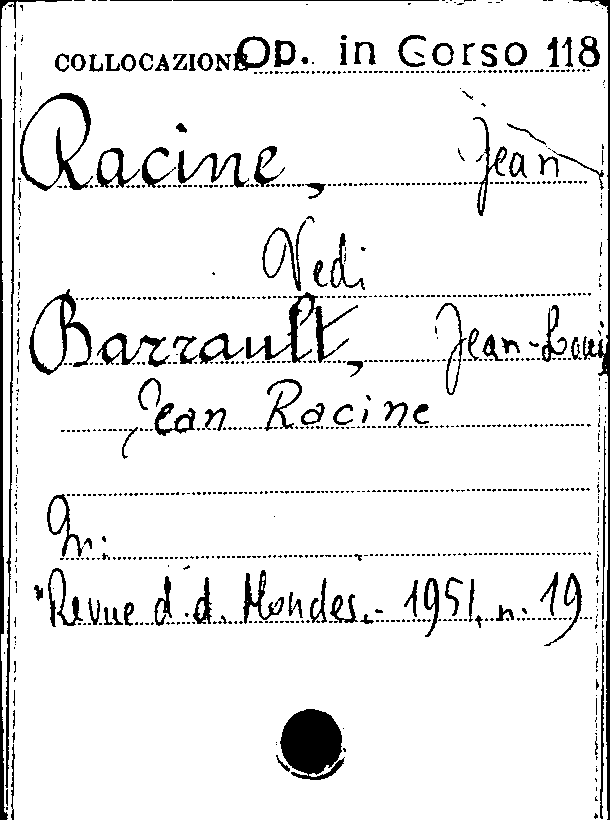 COLLOCAZIONE Op. in Corso 118
Racine, Jean
Vedi
Barrault, Jean-Louis
Jean Racine
In:
"Revue d. d. Mondes.- 1951, n. 19